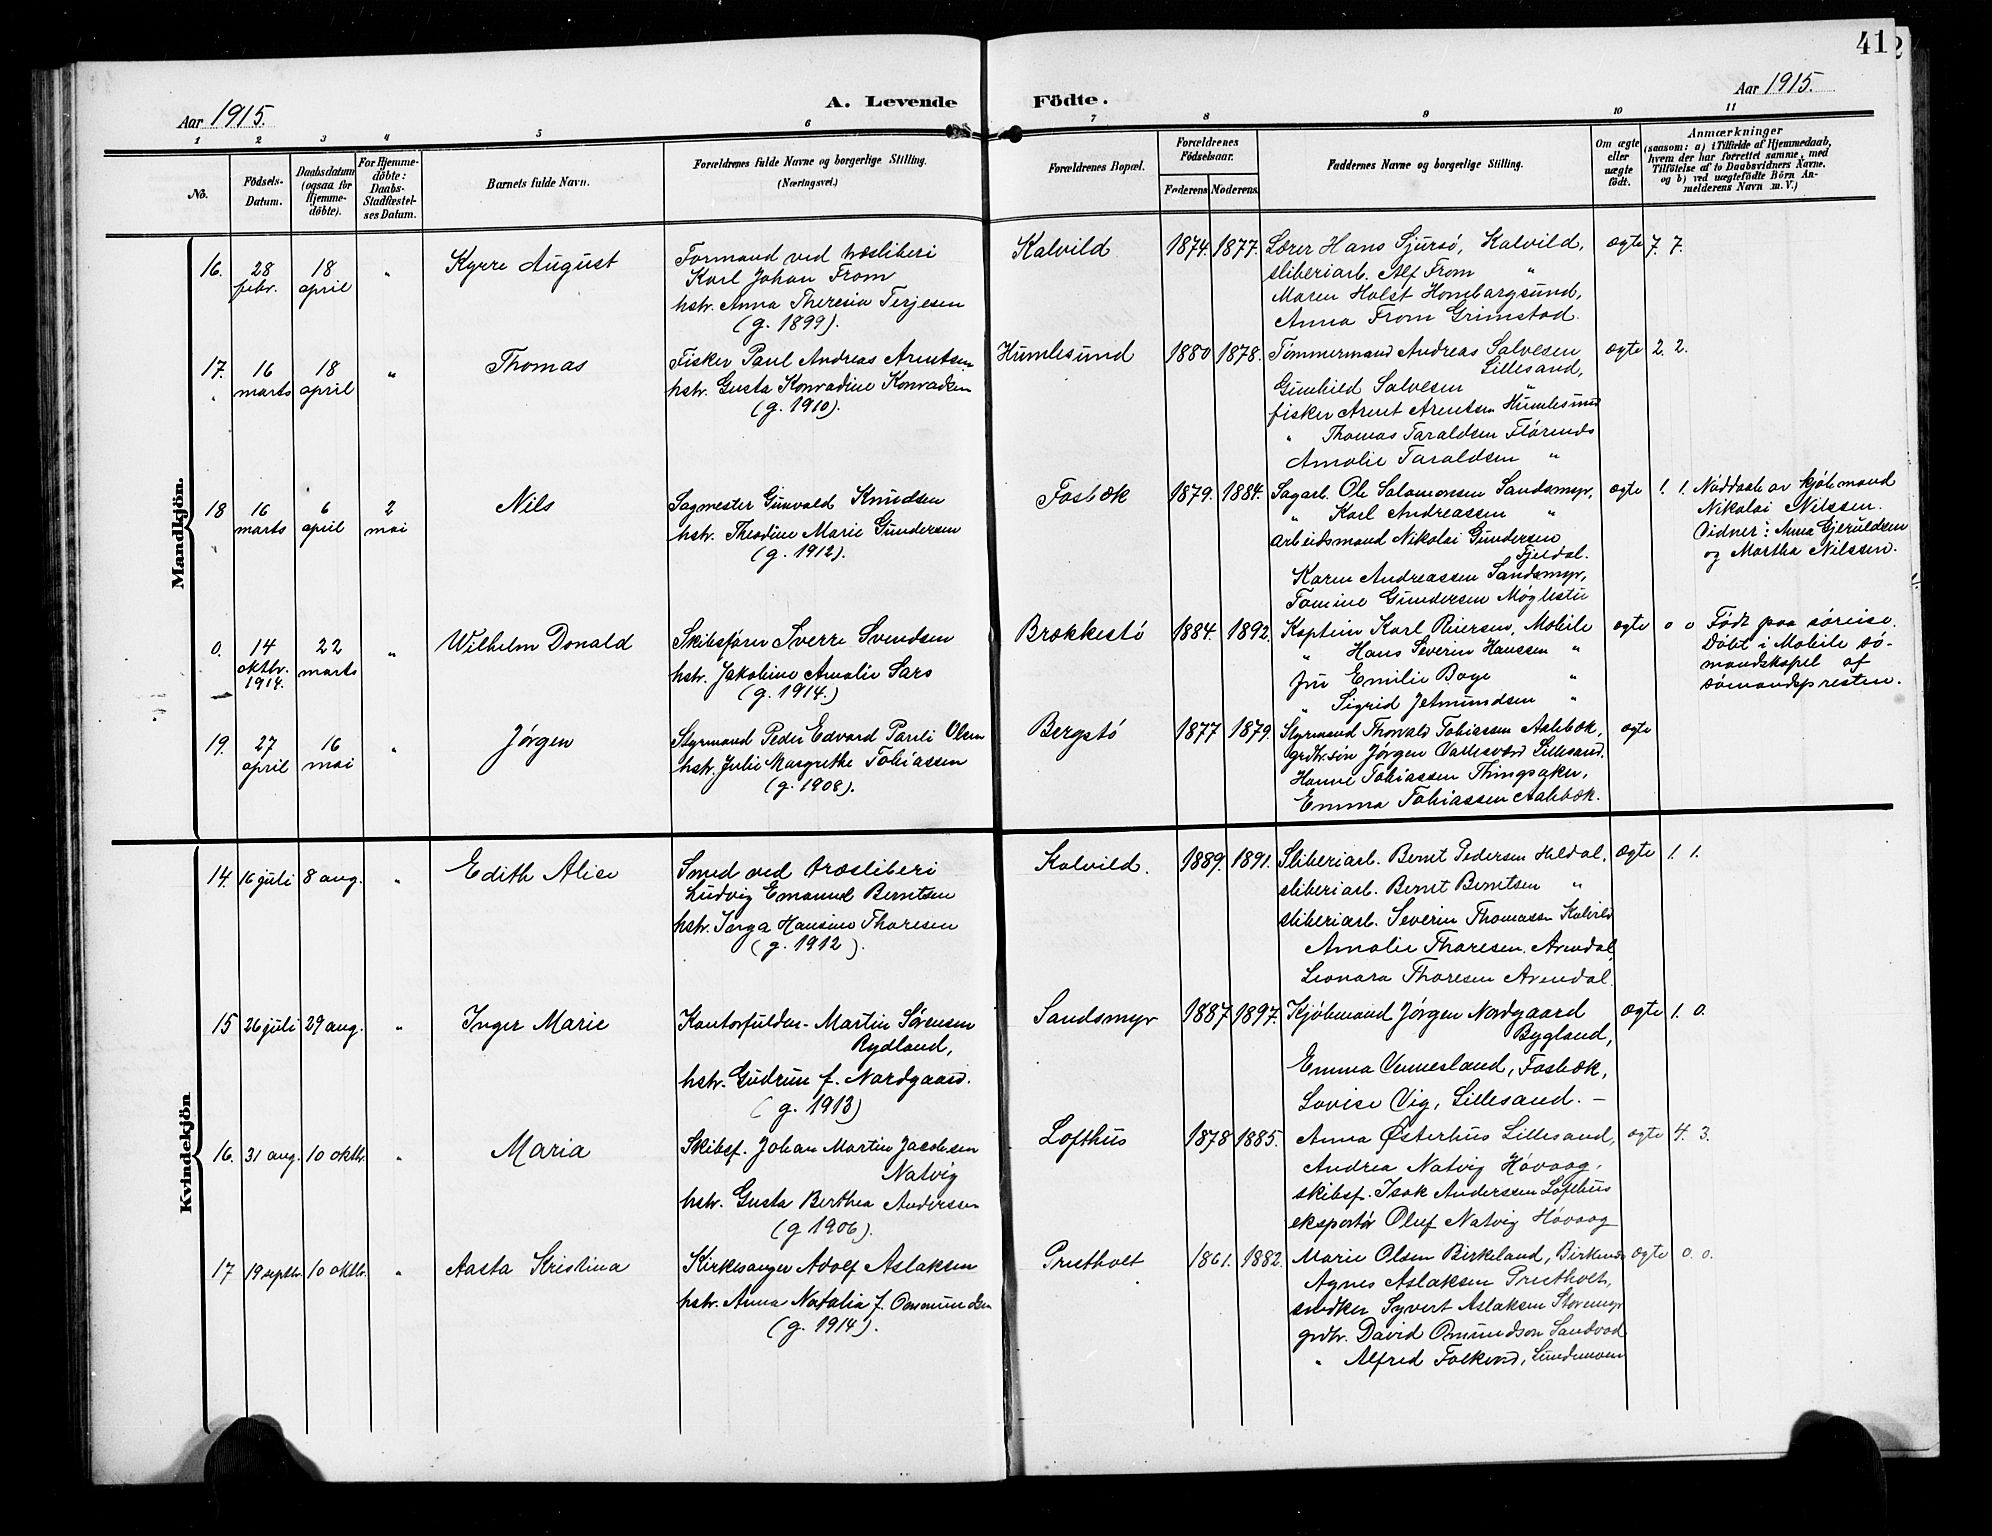 41
Aar 1915.
A. Levende Födte.
Aar 1915.
1 2 3 4 5 6 7 8 9 10 11
No.
Födsels-Datum.
Daabsdatum (ogsaa for Hjemme-döbte).
For Hjemme-döbte: Daabs-Stadfæstel-ses Datum.
Barnets fulde Navn.
Forældrenes fulde Navne og borgerlige Stilling.
(Næringsvei.)
Forældrenes Bopæl.
Forældrenes Födselsaar.
Faderens Moderens.
Faddernes Navne og borgerlige Stilling.
Om ægte eller uægte födt.
Anmærkninger
(saasom: a) i Tilfælde af Hjemmedaab, hvem der har forrettet samme, med Tilföielse af to Daabsvidners Navne, og b) ved uægtefödte Börn An-melderens Navn m. V.)
Mandkjön.
16. 28 febr. 18 april " Kyrre August
Formand ved træsliberi
Karl Johan From
hstr. Anna Theresia Terjesen
(g. 1899).
Kalvild 1874. 1877.
Lærer Hans Sjursö, Kalvild,
sliberiarb. Alf From "
Maren Holst Homborgsund,
Anna From Grimstad.
ægte 7. 7.
17. 16 marts 18 april " Thomas
Fisker Paul Andreas Arentsen
hstr. Gusta Konradine Konradsen
(g. 1910).
Humlesund 1880 1878.
Tømmermand Andreas Salvesen
Lillesand,
Gunhild Salvesen "
fisker Arent Arentsen Humlesund
" Thomas Taraldsen
Amalie Taraldsen "
ægte 2. 2.
18 16 marts 6 april 2 mai Nils
Sagmester Gunvald Knudsen
hstr. Theodine Marie Gundersen
(g. 1912).
Fosbæk 1879. 1884.
Sagarb. Ole Salomonsen Sandsmyr,
" Karl Andreassen "
arbeidsmand Nikolai Gundersen
Fjeldal.
Karen Andreassen Sandsmyr,
Tomine Gundersen Møglestu
ægte 1. 1.
Nøddaab av kjøbmand
Nikolai Nilssen.
Vidner: Anna Gjeruldsen
og Martha Nilssen.
0. 14 oktbr. 1914. 22 marts " Wilhelm Donald
Skibsfører Sverre Svendsen
hstr. Jakobine Amalie Sars
(g. 1914.)
Brækkestö 1884. 1892.
Kaptein Karl Reiersen, Mobile
" Hans Severin Hanssen "
fru Emilie Boge "
" Sigrid Jetmundsen "
ægte 0 0
Født paa søreise.
Döbt i Mobile sö-
mandskapel af
sömandspresten.
19. 27 april 16 mai " Jørgen
Styrmand Peder Edvard Pauli Olsen
hstr. Julie Margrethe Tobiassen
(g. 1908).
Bergstö 1877 1879.
Styrmand Thorvald Tobiassen Aabbæk,
grdbr.sön Jørgen Lillesand.
Hanne Tobiassen Thingsaker,
Emma Tobiassen Aabbæk.
ægte
Kvindekjön
14. 16 juli 8 aug. " Edith Alise
Smed ved træsliberi
Ludvig Emanuel Berntsen
hstr. Inga Hansine Thoresen
(g. 1912).
Kalvild. 1889. 1891.
Sliberiarb. Bernt Pedersen Heldal,
sliberiarb. Bernt Berntsen "
sliberiarb. Severin Thomassen Kalvild
Amalie Thoresen. Arendal,
Leonora Thoresen Arendal.
ægte 1. 1.
15 26 juli 29 aug. " Inger Marie
Kontorfuldm. Martin Sørensen
Rydland,
hstr. Gudrun f. Nordgaard.
(g. 1913)
Sandsmyr 1887 1897.
Kjøbmand Jørgen Nordgaard
Bygland,
Emma Vennesland, Fosbæk,
Lovise Vig, Lillesand. -
ægte 1. 0.
16. 31 aug. 10 oktbr. " Maria
Skibsf. Johan Martin Jacobsen
Natvig
hstr. Gusta Berthea Anderssen
(g 1906).
Lofthus 1878 1885.
Anna Østerhus Lillesand,
Andrea Natvig Høvaag,
skibsf. Isak Anderssen Lofthus
eksportör Oluf Natvig Høvaag
ægte 4. 3.
17 19 septbr. 10 oktbr. " Aasta Kristina
Kirkesanger Adolf Aslaksen
hstr. Anna Natalia f. Omundsen
(g. 1914).
Prestholt 1861. 1882.
Marie Olsen Birkeland, Birkenes
Agnes Aslaksen Prestholt,
snedker Syvert Aslaksen Storemyr
grdbr. David Omundson Sandvad
" Alfred
ægte 0. 0.